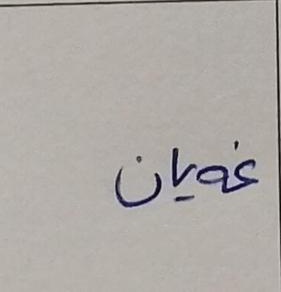 غەیان